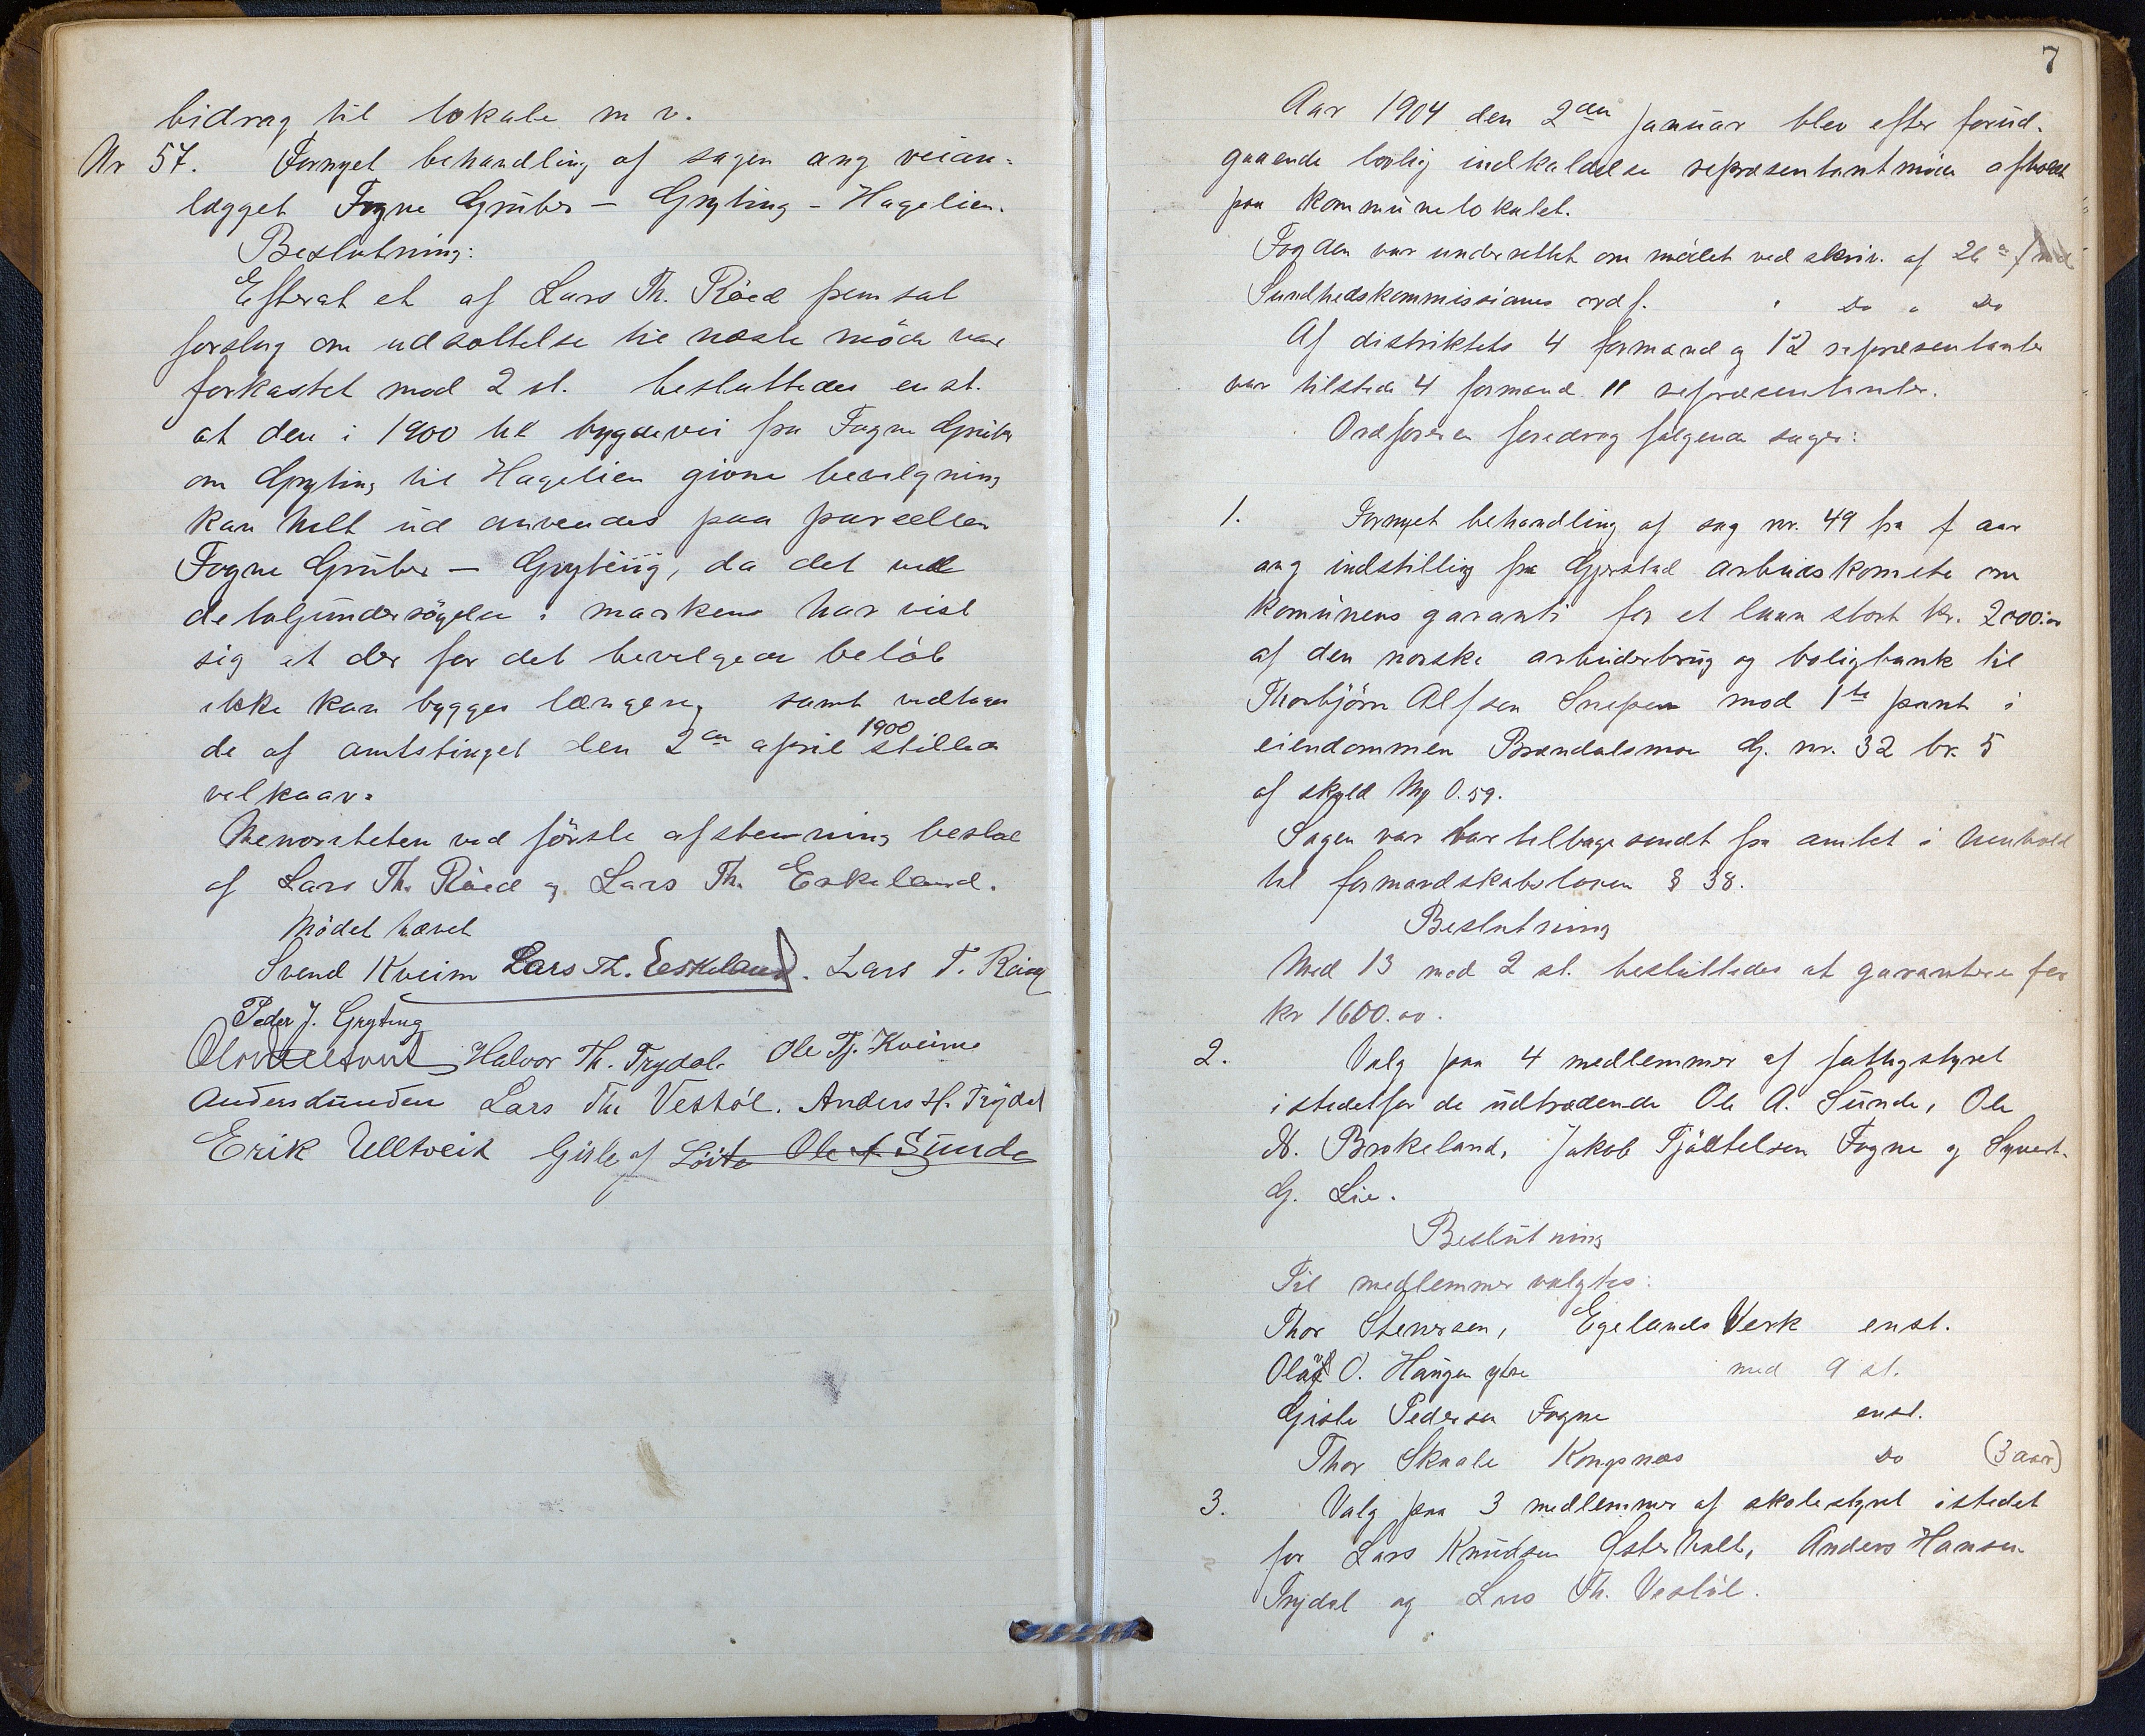 bidrag til lokale m v.
Nr 57. Fornyet behandling af sagen ang veian-
lægget Fogne Gruber - Gryting - Hagelien.
Beslutning:
Efterat et af Lars Th. Röed fremsat
forslag om udsættelse til næste möde var
forkastet mod 2 st. besluttedes enst.
at den i 1900 til bygdevei fra Fogne Gruber
om Gryting til Hagelien givne bevilgning
kan helt ud anvendes paa parcellen
Fogne Gruber - Gryting, da det ved
detaljundersögelse i marken har vist
sig at der for det bevilgede belöb
ikke kan bygges længere, samt vedtages
de af amtstinget den 2en april 1900 stillede
vilkaar.
Menoriteten ved förste afstemning bestod
af Lars Th. Röed og Lars Th. Eskeland.
Mödet hævet
Svend Kveim Lars Th. Eeskeland. Lars T. Röed
Peder J. Gryting
Olav Ulltveit Halvor Th. Trydal. Ole Tj. Kveim
Anders Lunden Lars Th Vestöl. Anders H. Trydal
Erik Ulltveit Gisle af Löite Ole A Sunde
7
Aar 1904 den 2den januar blev efter forud-
gaaende lovlig indkaldelse repræsentantmöde afholdt
paa kommunelokalet.
Fogden var underrettet om mödet ved skriv. af 26
Sundhedskommissionens ordf. " Do " Do
Af distriktets 4 formænd og 12 repræsentanter
var tilstede 4 formænd 11 repræsentanter.
Ordföreren foredrog fölgende sager:
1. Fornyet behandling af sag nr. 49 fra f aar
ang indstilling fra Gjerstad arbeiderkomite om
kommunens garanti for et laan stort kr. 2000:00
af den norske arbeiderbrug og boligbank til
Thorbjörn Alfsen Snepen mod 1ste pant i
eiendommen Brændalsmoe G. nr. 32 br. 5
af skyld Mg 0.59.
Sagen var tilbagesendt fra amtet i henhold
til formandskabsloven § 38.
Beslutning
Med 13 mod 2 st. besluttedes at garantere for
kr 1600.00.
2. Valg paa 4 medlemmer af fattigstyret
istedetfor de udtrædende Ole A. Sunde, Ole
N. Brokeland, Jakob Tjöstelsen Fogne og Syvert
G. Lie.
Beslutning
Til medlemmer valgtes:
Thor Stenersen, Egelands Verk enst.
Olav O. Haugen ytre med 9 st.
Gisle Pedersen Fogne enst.
Thor Skaale Kongsnæs Do (3 aar)
3. Valg paa 3 medlemmer af skolestyret istedet
for Lars Knudsen Østerholt, Anders Hansen
Trydal og Lars Th. Vestöl.